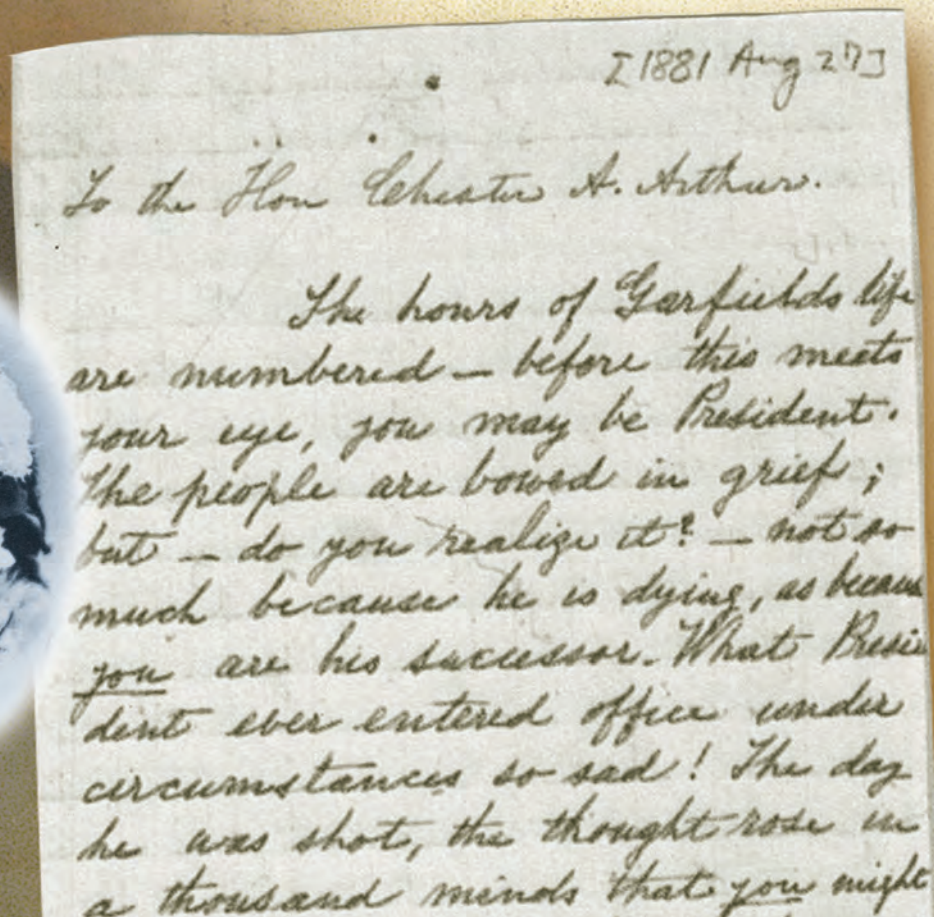 [1881 Aug 27]
To the Hon Chester A. Arthur.
The hours of Garfields life
are numbered – before this meets
your eye, you may be President.
The people are bowed in grief;
but – do you realize it? – not so
much because he is dying, as because
you are his successor. What Presi
dent ever entered office under
circumstances so sad! The day
he was shot, the thought rose in
a thousand minds that you might